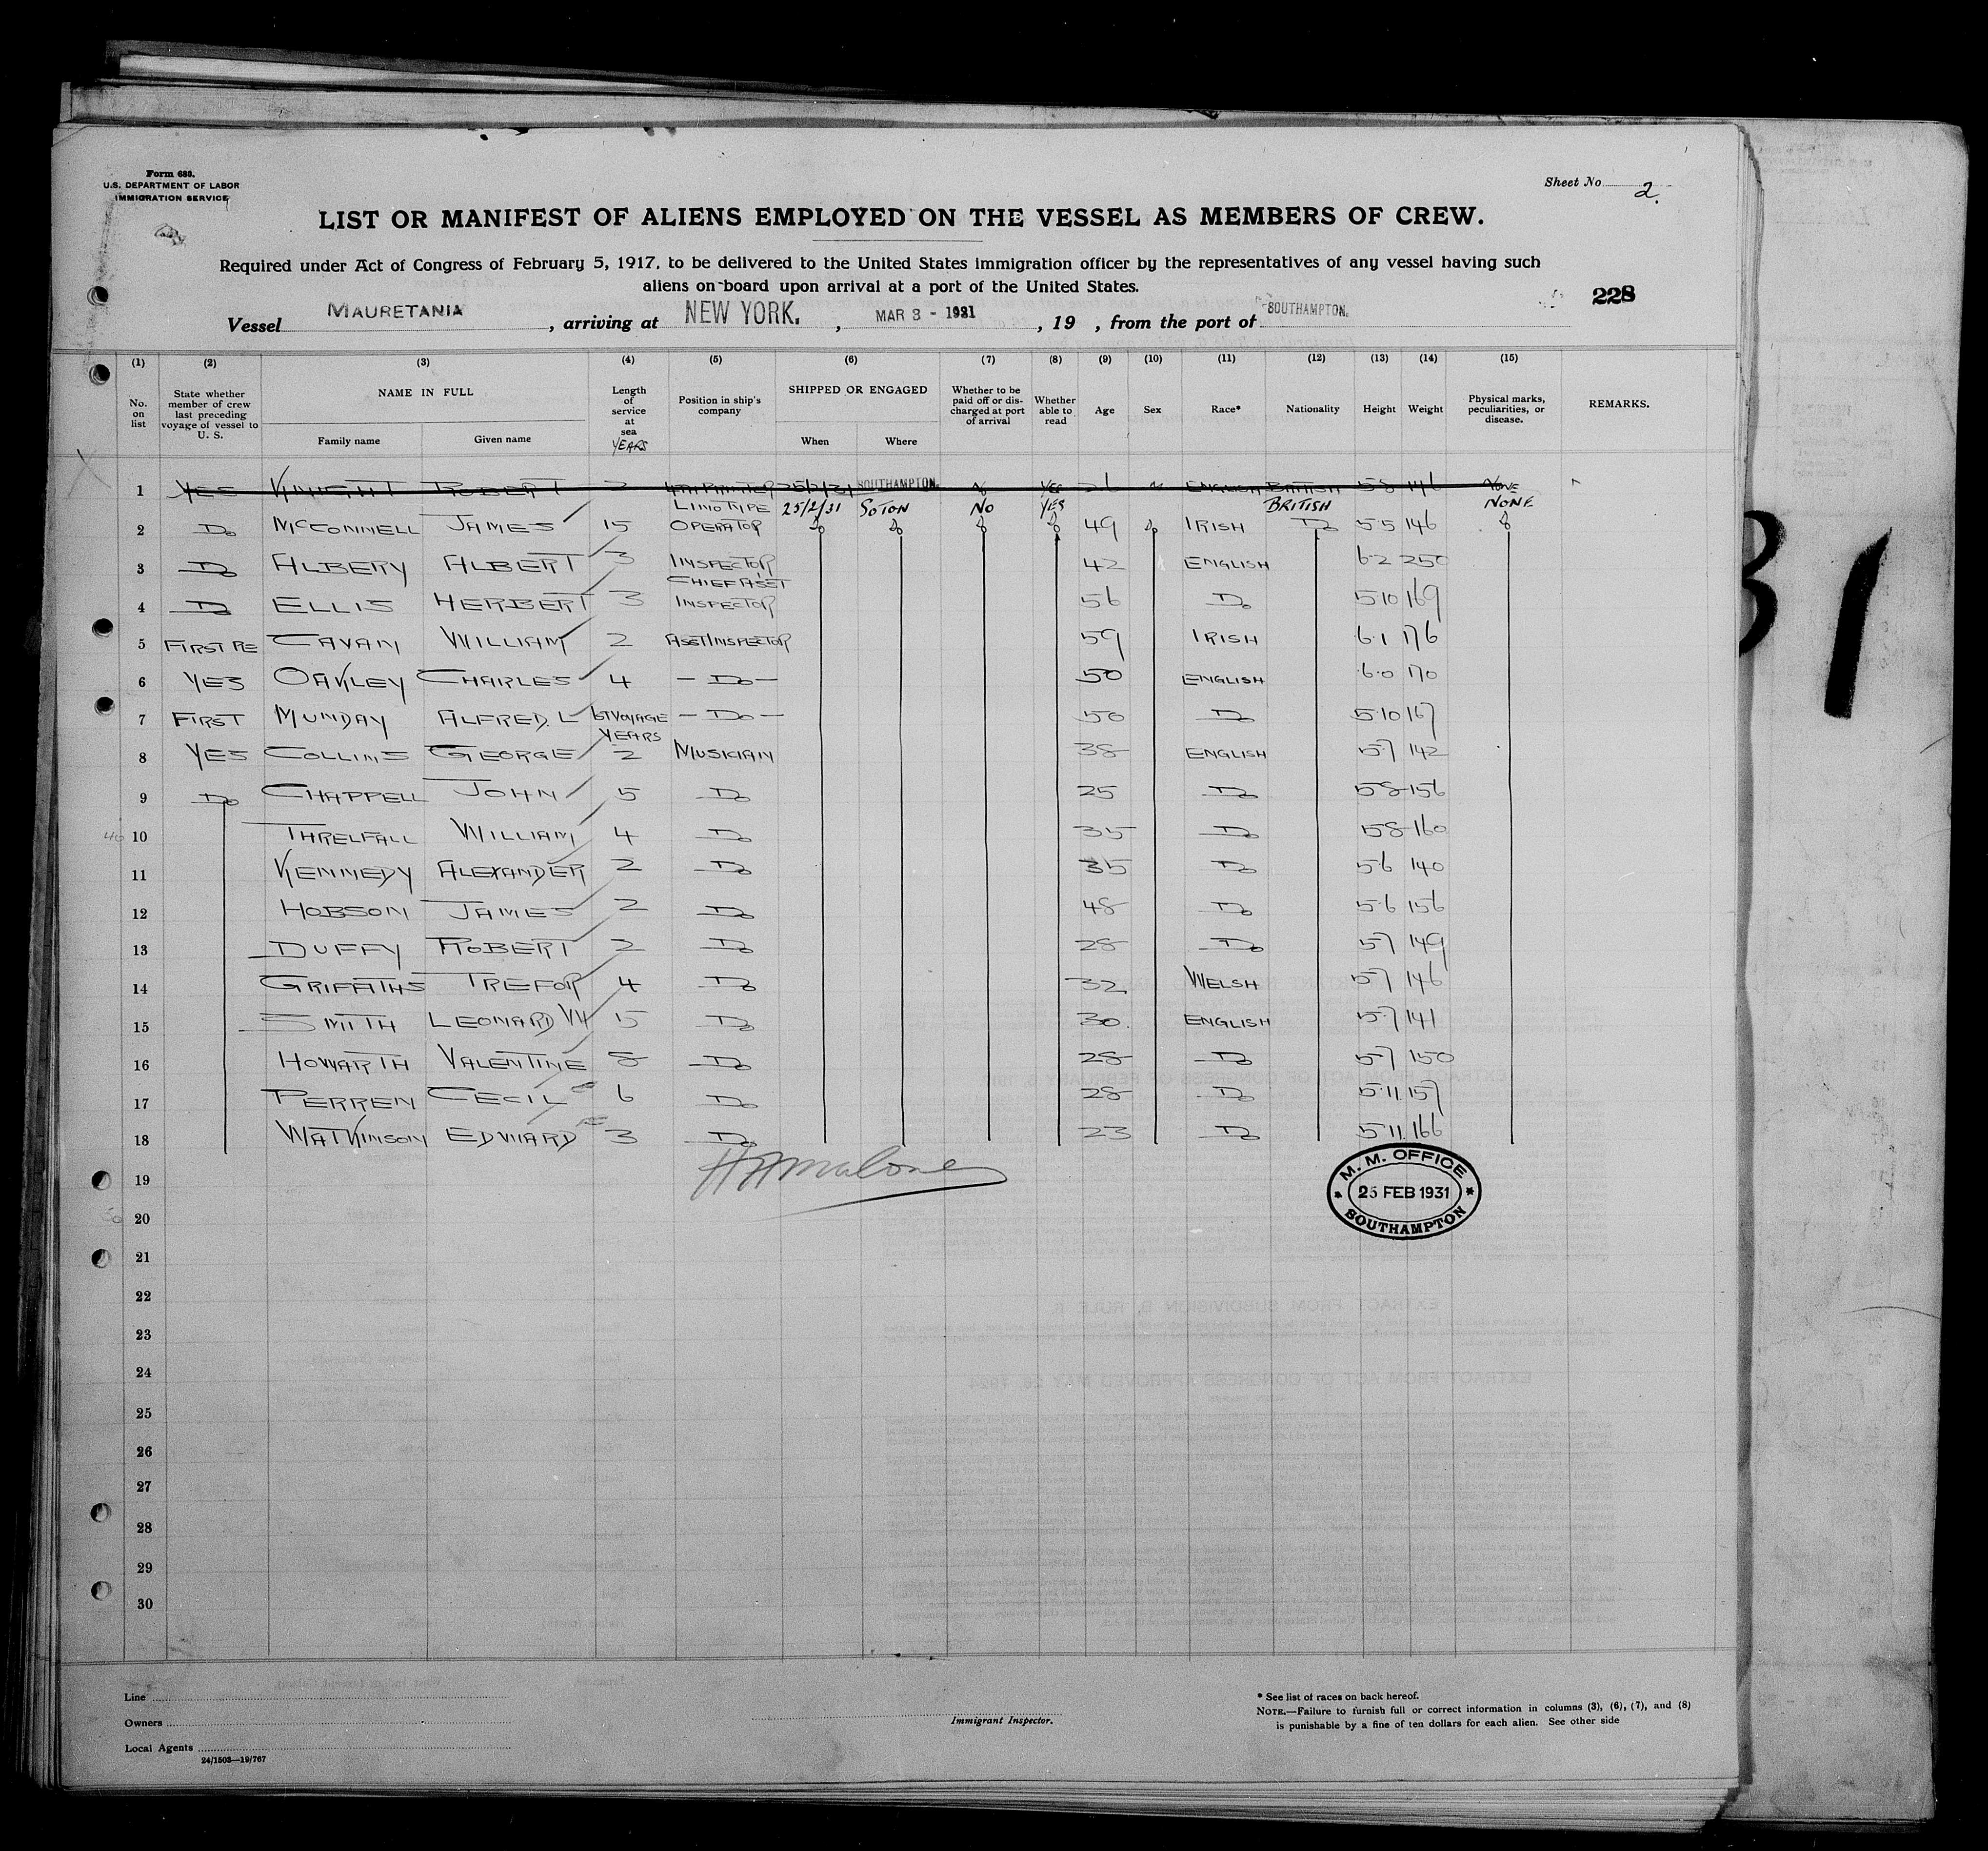 Form 680.
U.S. DEPARTMENT OF LABOR
IMMIGRATION SERVICE
Sheet No 2.
LIST OR MANIFEST OF ALIENS EMPLOYED ON THE VESSEL AS MEMBERS OF CREW.
Required under Act of Congress of February 5, 1917, to be delivered to the United States immigration officer by the representatives of any vessel having such
aliens on board upon arrival at a port of the United States.
228
Vessel MAURETANIA, arriving at NEW YORK., MAR 3 - 1931, 19 , from the port of SOUTHAMPTON.
(1) (2) (3) (4) (5) (6) (7) (8) (9) (10) (11) (12) (13) (14) (15)
No. on list State whether member of crew last preceding voyage of vessel to U. S. NAME IN FULL Family name Given name Length of service at sea YEARS Position in ship's company SHIPPED OR ENGAGED When Where Whether to be paid off or discharged at port of arrival Whether able to read Age Sex Race* Nationality Height Weight Physical marks, peculiarities, or disease. REMARKS.
1 YES KNIGHT ROBERT 25/2/31 SOUTHAMPTON. YES 26 ENGLISH BRITISH 5 8 146 NONE
2 Do McCONNELL JAMES 15 LINOTYPE OPERATOR 25/2/31 SOTON NO YES do do do do 49 do IRISH BRITISH Do 5 5 146 NONE do
3 Do ALBERY ALBERT 3 INSPECTOR 42 ENGLISH 6·2 250
4 Do ELLIS HERBERT 3 CHIEF ASST INSPECTOR 56 Do 5·10 169
5 FIRST RE CAVAN WILLIAM 2 ASST INSPECTOR 59 IRISH 6·1 176
6 YES OAKLEY CHARLES 4 - Do - 50 ENGLISH 6·0 170
7 FIRST MUNDAY ALFRED. L 1ST VOYAGE - Do - 50 Do 5·10 167
8 YES COLLINS GEORGE YEARS 2 MUSICIAN 38 ENGLISH 5·7 142
9 Do CHAPPELL JOHN 5 Do 25 Do 5·8 156
10 THRELFALL WILLIAM 4 Do 35 Do 5·8 160
11 KENNEDY ALEXANDER 2 Do 35 Do 5·6 140
12 HOBSON JAMES 2 Do 48 Do 5·6 156
13 DUFFY ROBERT 2 Do 28 Do 5·7 149
14 GRIFFITHS TREFOR 4 Do 32 WELSH 5·7 146
15 SMITH LEONARD W 15 Do 30 ENGLISH 5·7 141
16 HOWARTH VALENTINE 8 Do 28 Do 5·7 150
17 PERREN CECIL 6 Do 28 Do 5·11 157
18 WATKINSON EDWARD 3 Do 23 Do 5·11 166
19
HAMalone
M. M. OFFICE
25 FEB 1931
SOUTHAMPTON
20
21
22
23
24
25
26
27
28
29
30
Line
Owners
Local Agents
24/1503—19/767
Immigrant Inspector.
* See list of races on back hereof.
NOTE.—Failure to furnish full or correct information in columns (3), (6), (7), and (8)
is punishable by a fine of ten dollars for each alien. See other side
31